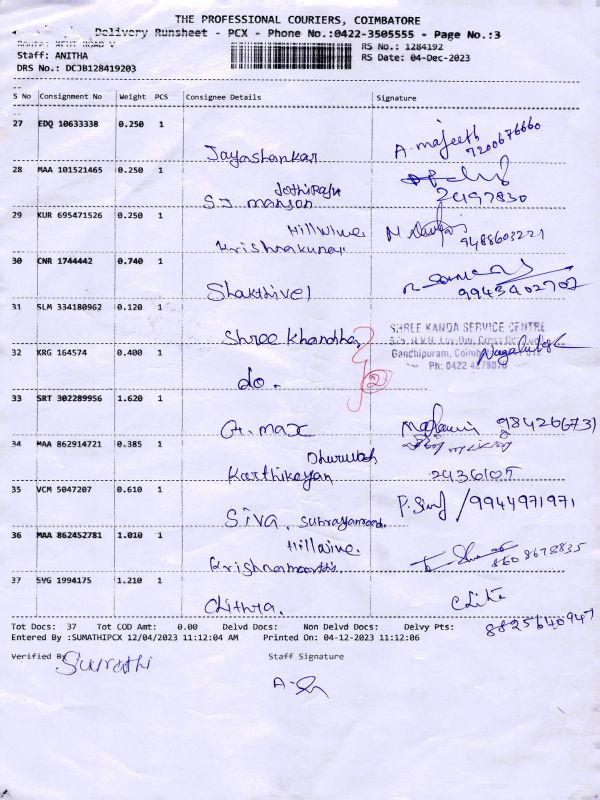 THE PROFESSIONAL COURIERS, COIMBATORE
Delivery Runsheet - PCX - Phone No.:0422-3505555 - Page No.:3
RS No.: 1284192
Staff: ANITHA
RS Date: 04-Dec-2023
DRS No.: DCJB128419203
S No Consignment No Weight PCS Consignee Details Signature
27 EDQ 10633338 0.250 1
Jayashankar A. majeeth 7200676660
28 MAA 101521465 0.250 1
Jothiraju
S.J. manson 2497830
29 KUR 695471526 0.250 1
Hillwine
Krishnakumar 9488603221
30 CNR 1744442 0.740 1
Shakthivel 9943402707
31 SLM 334180962 0.120 1
Shree Khandha
SHREE KANDA SERVICE CENTRE
32 KRG 164574 0.400 1
Gandhipuram,
Ph: 0422
do. 2
33 SRT 302289956 1.620 1
G. max 984266731
34 MAA 862914721 0.385 1
Karthikeyan 2436105
35 VCM 5047207 0.610 1
Siva. P. / 9944971971
36 MAA 862452781 1.010 1
37 SYG 1994175 1.210 1
Chithra.
8825640947
Tot Docs: 37 Tot COD Amt: 0.00 Delvd Docs: Non Delvd Docs: Delvy Pts:
Entered By :SUMATHIPCX 12/04/2023 11:12:04 AM Printed On: 04-12-2023 11:12:06
Verified By Sumathi Staff Signature